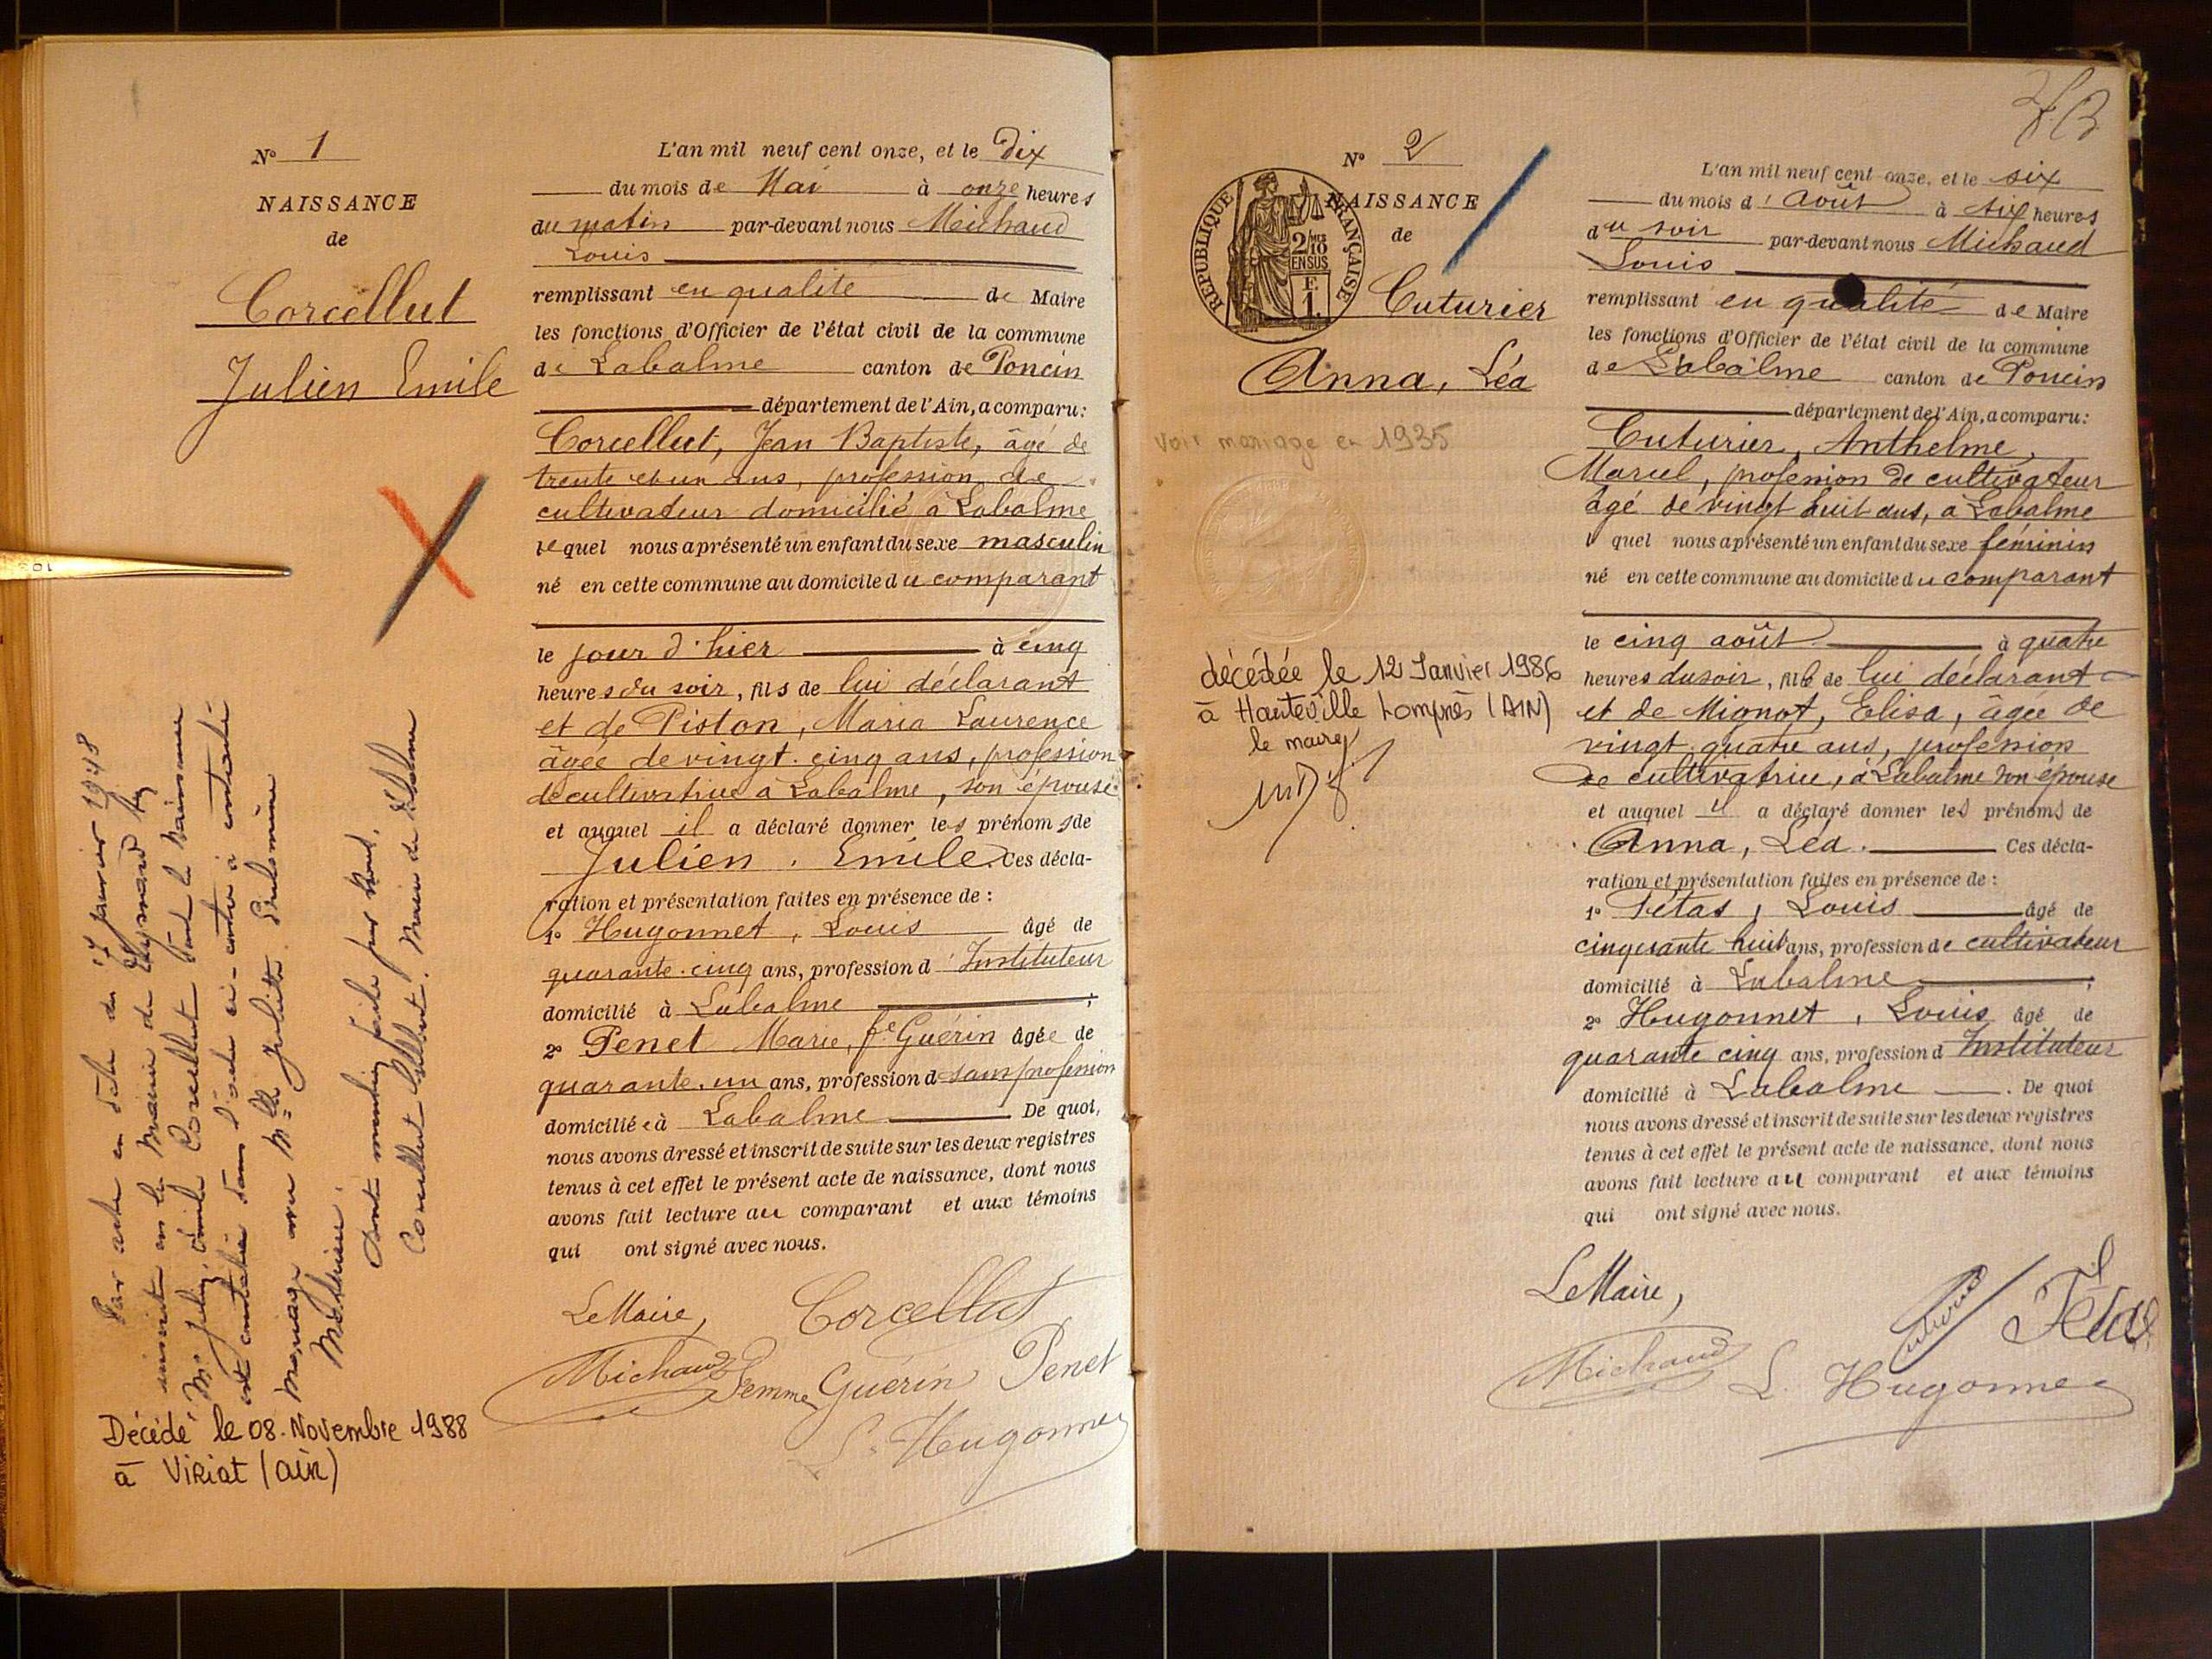 N° 1
NAISSANCE
de
Corcellut
Julien Emile
L'an mil neuf cent onze, et le Dix
du mois de Mai à onze heures
du matin par-devant nous Michaud
Louis
remplissant en qualité de Maire
les fonctions d'Officier de l'état civil de la commune
de Labalme canton de Poncin
département de l'Ain, a comparu:
Corcellut, Jean Baptiste, âgé de
trente et un ans, profession de
cultivateur domicilié à Labalme
lequel nous a présenté un enfant du sexe masculin
né en cette commune au domicile du comparant
le jour d'hier à cinq
heures du soir, fils de lui déclarant
et de Piston, Maria Laurence
âgée de vingt-cinq ans, profession
de cultivatrice à Labalme, son épouse
et auquel il a déclaré donner les prénoms de
Julien, Emile. Ces décla-
ration et présentation faites en présence de :
1° Hugonnet, Louis âgé de
quarante-cinq ans, profession d'Instituteur
domicilié à Labalme ;
2° Penet Marie, fe Guérin âgée de
quarante-un ans, profession d sans profession
domiciliée à Labalme De quoi,
nous avons dressé et inscrit de suite sur les deux registres
tenus à cet effet le présent acte de naissance, dont nous
avons fait lecture au comparant et aux témoins
qui ont signé avec nous.
Le Maire, Corcellut
Michaud Femme Guerin Penet
L. Hugonnet
Par acte en date du 17 janvier 1948
inscrit en la Mairie de
Mr Julien, Emile Corcellut dont la naissance
est constatée dans l'acte ci-contre a contracté
Mariage avec Mlle Juliette
Dont mention faite par Nous,
Corcellut Maire de Labalme
Décédé le 08. Novembre 1988
à Viriat (ain)
73
N° 2
NAISSANCE
de
REPUBLIQUE FRANÇAISE
2/10
EN SUS
F.
1.
Cuturier
Anna, Léa
Voir mariage en 1935
décédée le 12 Janvier 1986
à Hauteville Lompnès (AIN)
le maire
L'an mil neuf cent onze, et le six
du mois d'Août à six heures
du soir par-devant nous Michaud
Louis
remplissant en qualité de Maire
les fonctions d'Officier de l'état civil de la commune
de Labalme canton de Poncin
département de l'Ain, a comparu:
Cuturier, Anthelme,
Marcel, profession de cultivateur
âgé de vingt huit ans, à Labalme
l quel nous a présenté un enfant du sexe féminin
né en cette commune au domicile du comparant
le cinq août à quatre
heures du soir, fille de lui déclarant
et de Mignot, Elisa, âgée de
vingt-quatre ans, profession
de cultivatrice, à Labalme son épouse
et auquel il a déclaré donner les prénoms de
Anna, Léa. Ces décla-
ration et présentation faites en présence de :
1° Tétas, Louis âgé de
cinquante huit ans, profession de cultivateur
domicilié à Labalme ;
2° Hugonnet, Louis âgé de
quarante cinq ans, profession d Instituteur
domicilié à Labalme . De quoi
nous avons dressé et inscrit de suite sur les deux registres
tenus à cet effet le présent acte de naissance, dont nous
avons fait lecture au comparant et aux témoins
qui ont signé avec nous.
Le Maire,
Cuturier Tétas
Michaud L. Hugonnet